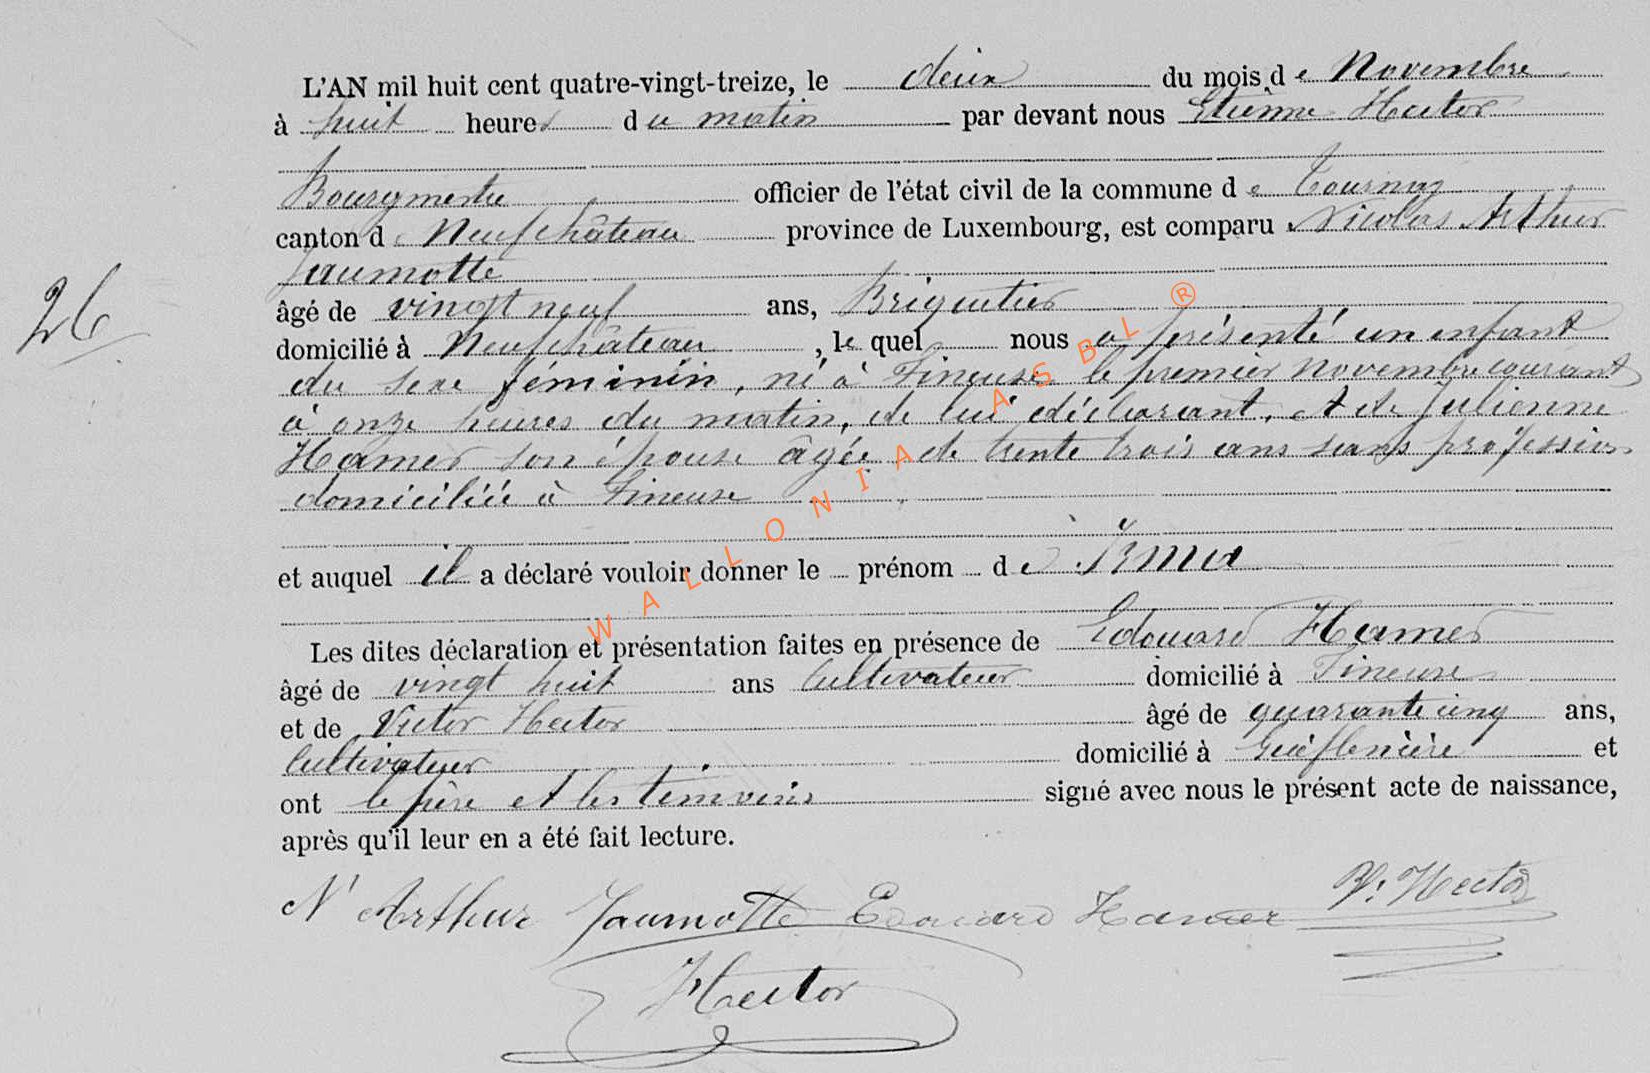 L'AN mil huit cent quatre-vingt-treize, le deux du mois de Novembre
à huit heures du matin par devant nous Etienne Hector
Bourgmestre officier de l'état civil de la commune de Tournay
canton de Neufchâteau province de Luxembourg, est comparu Nicolas Arthur
Jaumotte
âgé de vingt neuf ans, Briquetier
domicilié à Neufchâteau, lequel nous a présenté un enfant
26
du sexe féminin, né à Tineuse le premier Novembre courant
à onze heures du matin, de lui déclarant, et de Julienne
Hamer son épouse âgée de trente trois ans sans profession
domiciliée à Tineuse
et auquel il a déclaré vouloir donner le prénom de Irma
Les dites déclaration et présentation faites en présence de Edouard Hamer
âgé de vingt huit ans Cultivateur domicilié à Tineuse
et de Victor Hector âgé de quarante cinq ans,
Cultivateur domicilié à et
ont le père et les témoins signé avec nous le présent acte de naissance,
après qu'il leur en a été fait lecture.
N' Arthur Jaumotte Edouard Hamer V. Hector
Hector
WALLONIA ASBL ®